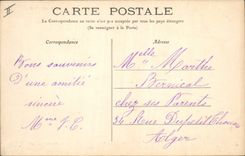 II
CARTE POSTALE
La Correspondance au verso n'est pas acceptée par tous les pays étrangers
(Se renseigner à la Poste)
Correspondance
Adresse
Bons souvenirs
D'une amitié
sincère
Mme J. C.
Melle Marthe
chez ses Parents
34 Rue
Alger